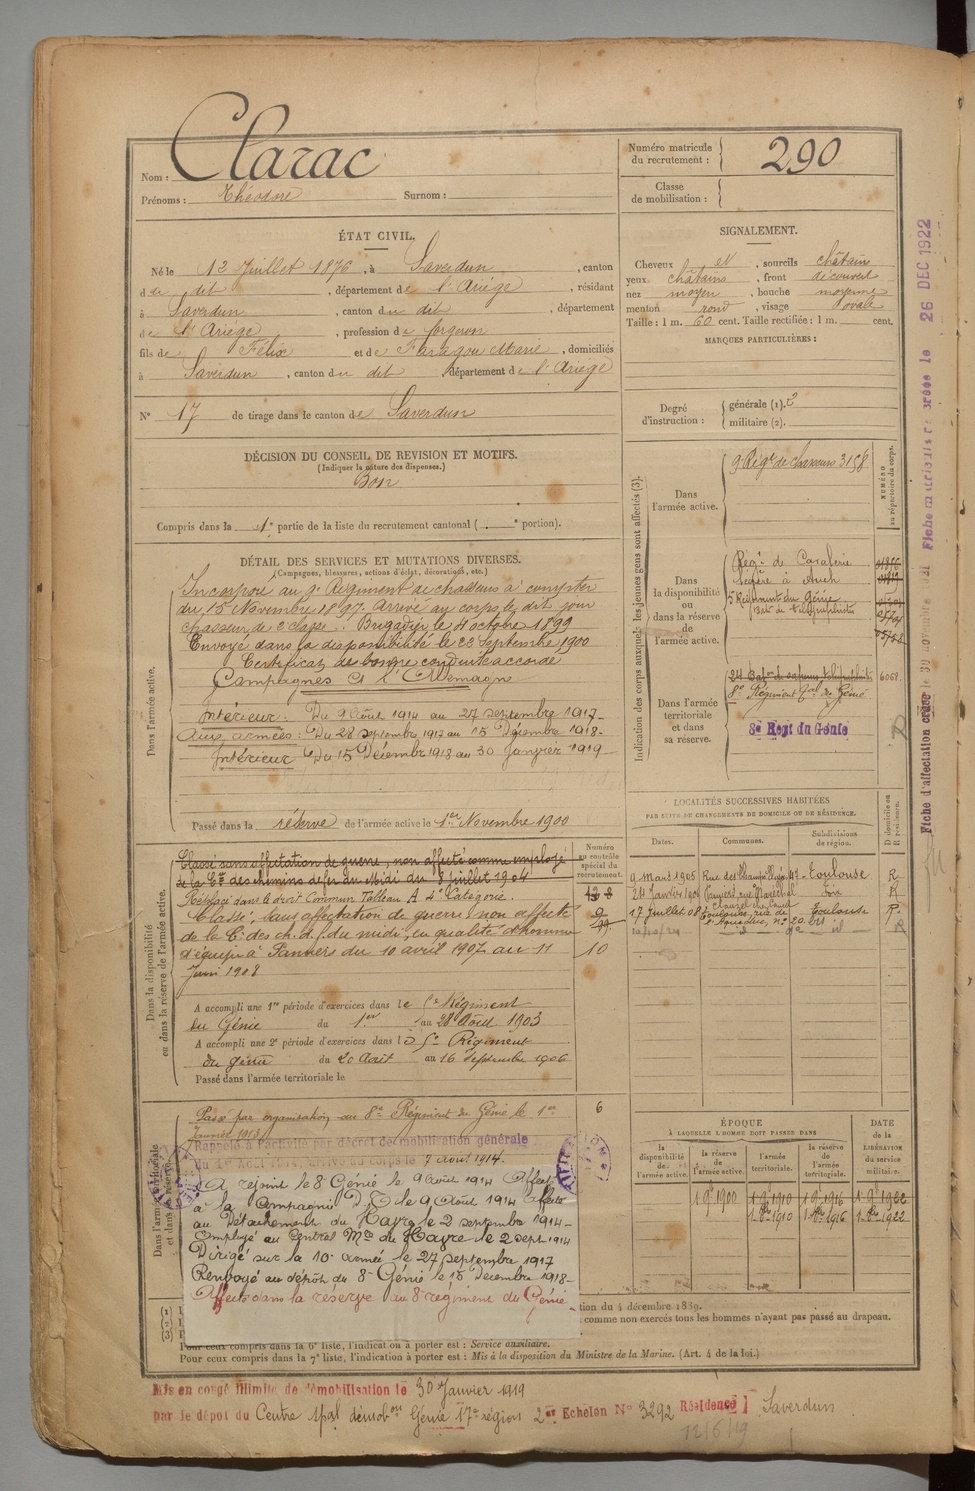 Nom : Clarac
Prénoms : Théodore Surnom :
Numéro matricule du recrutement : 290
Classe de mobilisation :
ÉTAT CIVIL.
Né le 12 Juillet 1876, à Saverdun, canton
du dit, département de l'Ariège, résidant
à Saverdun, canton du dit, département
de l'Ariège, profession de forgeron
fils de Félix et de Faragou Marie, domiciliés
à Saverdun, canton du dit, département de l'Ariège
N° 17 de tirage dans le canton de Saverdun
SIGNALEMENT.
Cheveux et, sourcils châtains
yeux châtains, front découvert
nez moyen, bouche moyenne
menton rond, visage ovale
Taille : 1 m. 60 cent. Taille rectifiée : 1 m. cent.
MARQUES PARTICULIÈRES :
Degré d'instruction : générale (1). 2
militaire (2).
DÉCISION DU CONSEIL DE REVISION ET MOTIFS.
(Indiquer la nature des dispenses.)
Bon
Compris dans la 1e partie de la liste du recrutement cantonal ( e portion).
DÉTAIL DES SERVICES ET MUTATIONS DIVERSES.
(Campagnes, blessures, actions d'éclat, décorations, etc.)
Dans l'armée active.
Incorporé au 9e Régiment de chasseurs à compter
du 15 Novembre 1897. Arrivé au corps le dit jour
chasseur de 2e classe. Brigadier le 4 octobre 1899
Envoyé dans la disponibilité le 22 Septembre 1900
Certificat de bonne conduite accordé
Campagnes Ct l'Allemagne
Intérieur : Du 9 Août 1914 au 27 septembre 1917-
Aux armées : Du 28 septembre 1917 au 15 Décembre 1918-
Intérieur Du 15 Décembre 1918 au 30 Janvier 1919-
Passé dans la réserve de l'armée active le 1er Novembre 1900
Indication des corps auxquels les jeunes gens sont affectés (3).
NUMÉRO au répertoire du corps.
Dans l'armée active.
9e Régt de chasseurs 3158
Dans la disponibilité ou dans la réserve de l'armée active.
Régt de Cavalerie
légère à Auch
5e Régiment du Génie
Bat. de télégraphistes
Dans l'armée territoriale et dans sa réserve.
24e Baton de sapeurs télégraphistes 6068
8e Régiment de Génie
8e Regt du Génie
Dans la disponibilité ou dans la réserve de l'armée active.
Numéro au contrôle spécial du recrutement.
Classé sans affectation de guerre, non affecté comme employé
de la Cie des chemins de fer du Midi du 8 juillet 1904
Replacé dans le droit commun Tableau A 4e Catégorie.
Classé, sans affectation de guerre, non affecté
de la Cie des ch. d. f. du midi, en qualité d'homme
d'équipe à Pamiers du 10 avril 1907 au 11
Juin 1908
10
A accompli une 1re période d'exercices dans le 5e Régiment
du Génie du 1er au 28 Août 1903
A accompli une 2e période d'exercices dans le 5e Régiment
du génie du 20 Août au 16 Septembre 1906
Passé dans l'armée territoriale le
LOCALITÉS SUCCESSIVES HABITÉES
PAR SUITE DE CHANGEMENTS DE DOMICILE OU DE RÉSIDENCE.
Dates. Communes. Subdivisions de région. D domicile ou R résidence.
9 Mars 1905 Toulouse R
24 Janvier 1906 Pamiers, rue Maréchal Clauzel Foix R
17 Juillet 08 Toulouse, rue de l'Aqueduc, n° 20 Toulouse R
Dans l'armée territoriale et dans sa réserve.
Passé par organisation au 8e Régiment du Génie le 1er
Janvier 1913
6
Rappelé à l'activité par décret de mobilisation générale
du 1er Août 1914. arrivé au corps le 7 août 1914.
A rejoint le 8 Génie le 9 Août 1914 Affecté
à la Compagnie D.T. le 9 Août 1914 Affecté
au Détachement du Havre le 2 septembre 1914-
Employé au Central Mre du Havre le 2 sept 1914
Dirigé sur la 10e armée le 27 septembre 1917
Renvoyé au dépôt du 8e Génie le 15 Décembre 1918-
Affecté dans la réserve au 8e régiment du Génie-
ÉPOQUE
À LAQUELLE L'HOMME DOIT PASSER DANS
la disponibilité de l'armée active. la réserve de l'armée active. l'armée territoriale. la réserve de l'armée territoriale.
DATE de la LIBÉRATION du service militaire.
1 9e 1900 1 9e 1910 1 9e 1916 1 9e 1922
1 1910 1 1916 1 1922
tion du 4 décembre 1889.
comme non exercés tous les hommes n'ayant pas passé au drapeau.
Pour ceux compris dans la 6e liste, l'indication à porter est : Service auxiliaire.
Pour ceux compris dans la 7e liste, l'indication à porter est : Mis à la disposition du Ministre de la Marine. (Art. 4 de la loi.)
Mis en congé illimité de démobilisation le 30 Janvier 1919
par le dépôt du Centre démobon Génie 17e région 2e Echelon N° 3292 Résidence Saverdun
12/6/19
Fiche d'affectation
26 DEC 1922